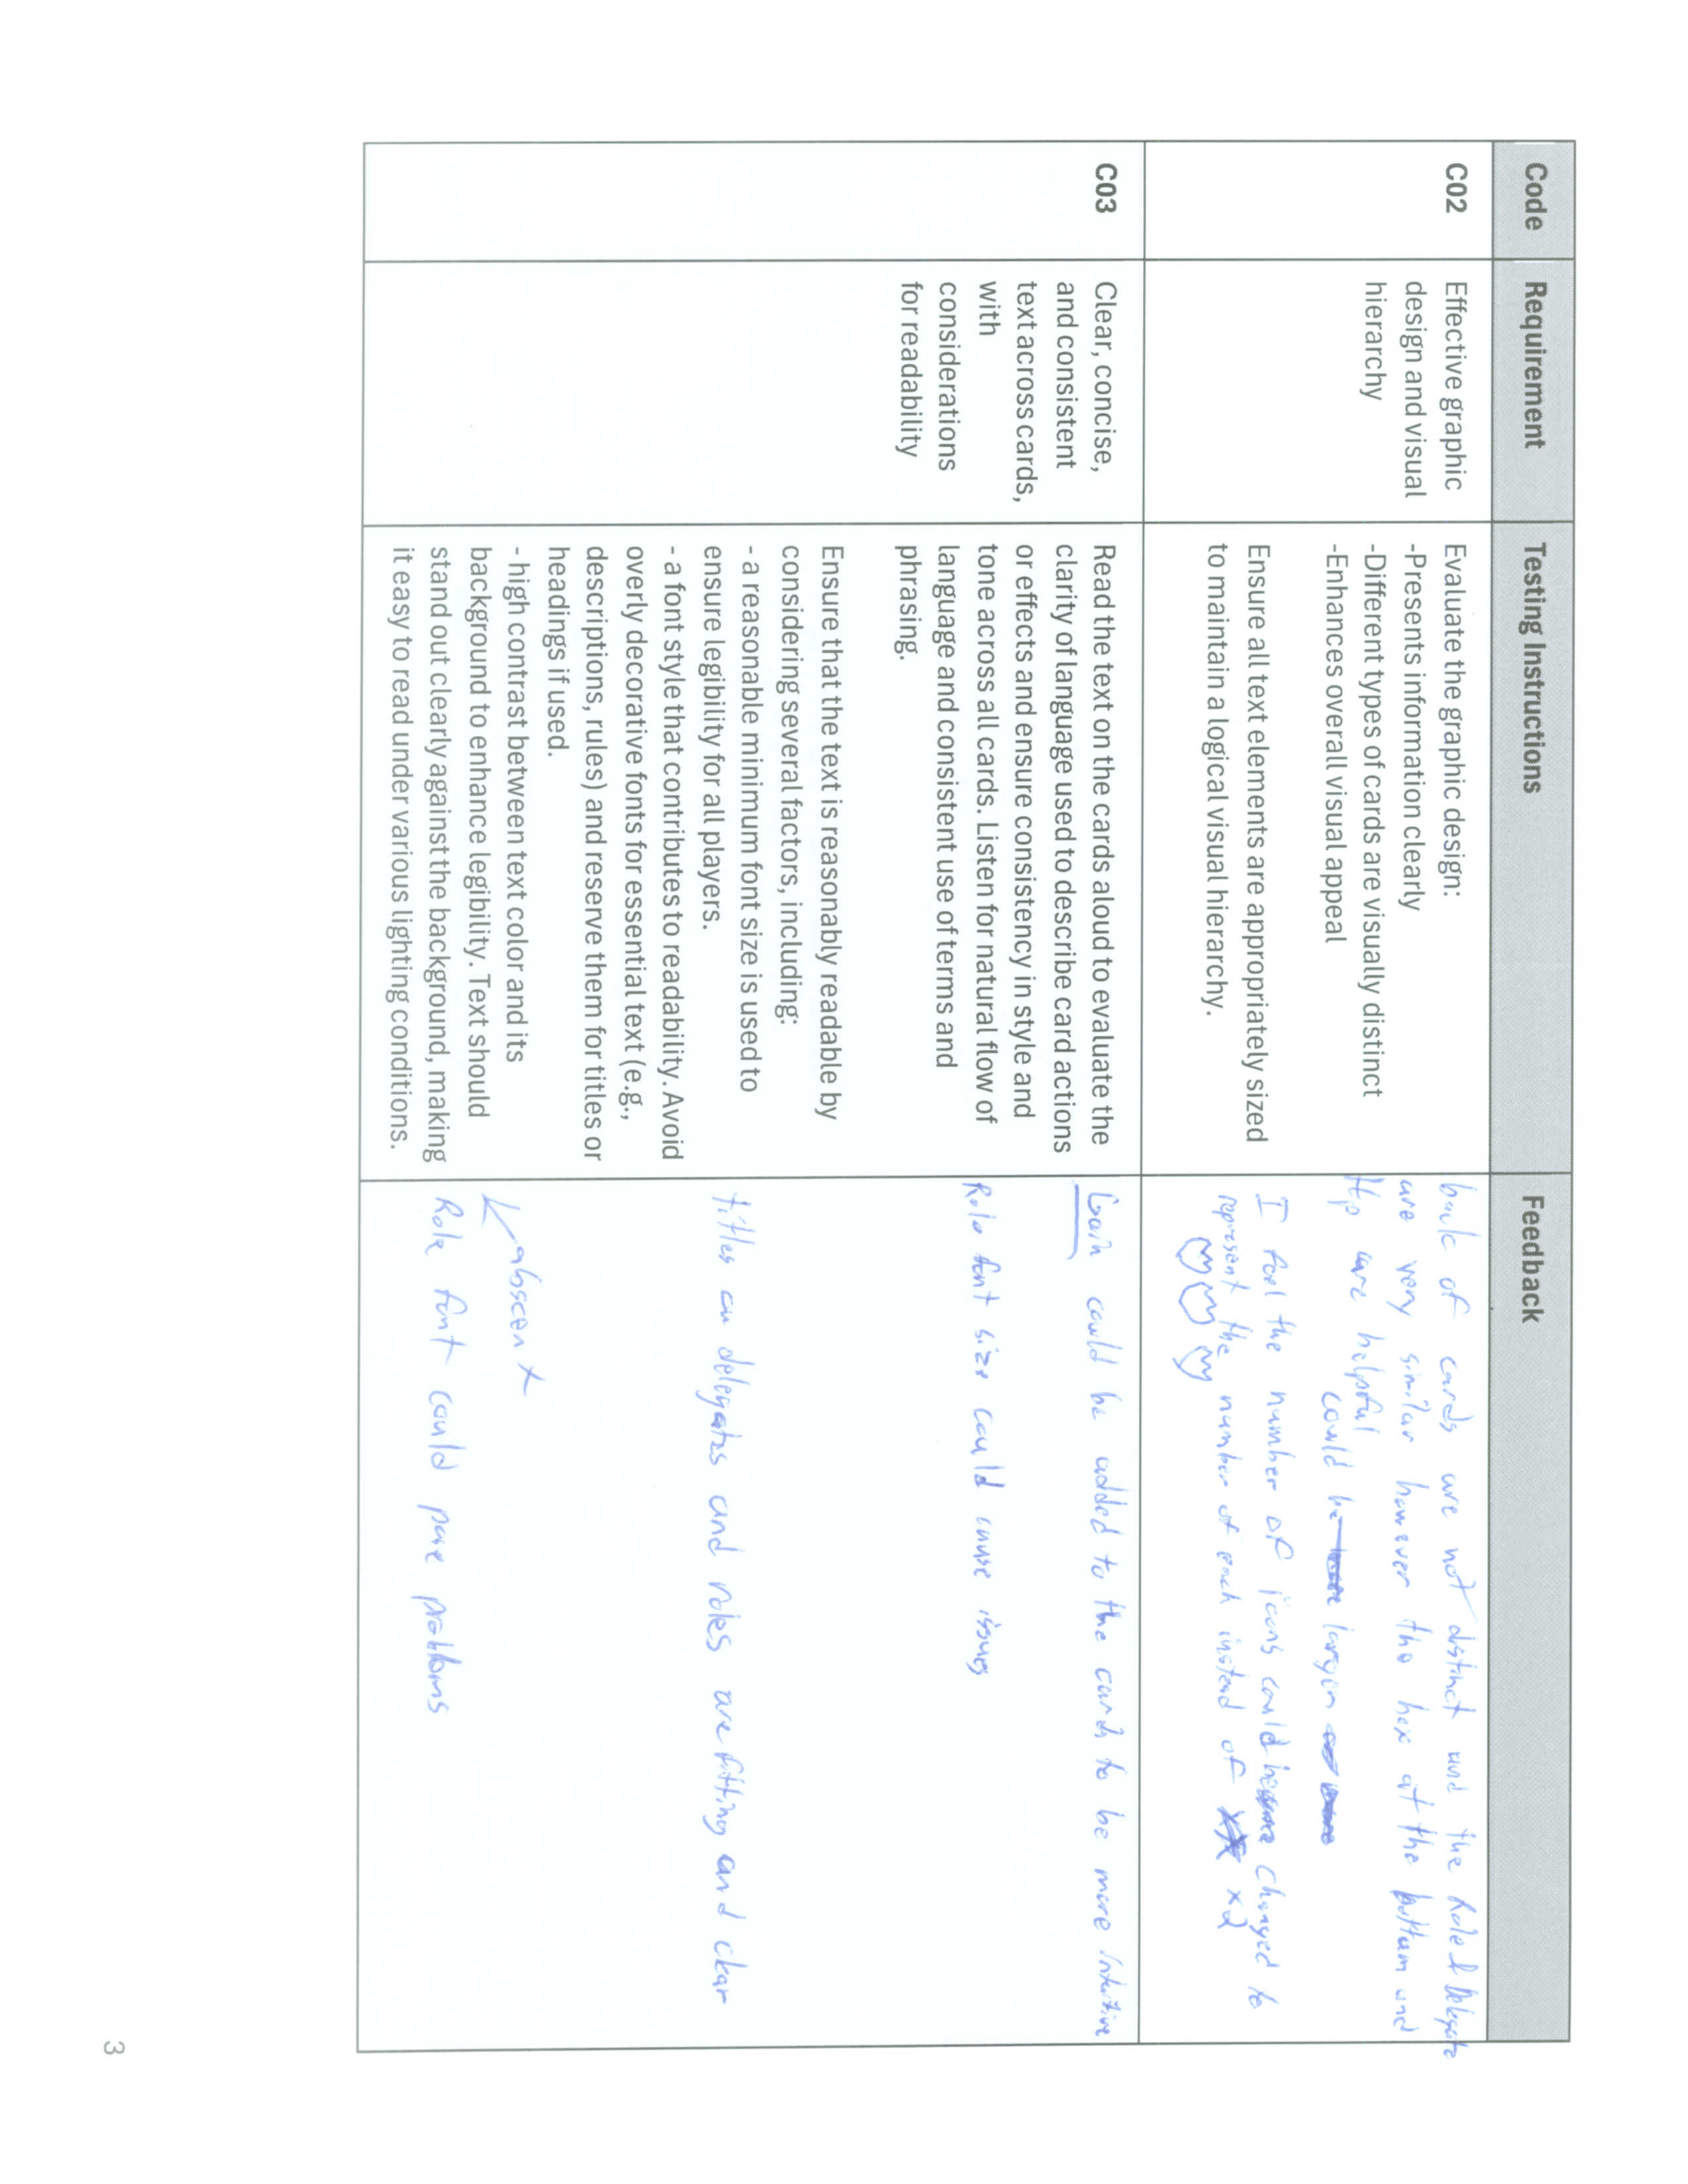 Code Requirement Testing Instructions Feedback
C02
Effective graphic
design and visual
hierarchy
Evaluate the graphic design:
-Presents information clearly
-Different types of cards are visually distinct
-Enhances overall visual appeal
Ensure all text elements are appropriately sized
to maintain a logical visual hierarchy.
back of cards are not distinct and the Role & Delegate
are very similar however the hex at the bottom and
top are helpful
could be larger
I feel the number of icons could be changed to
represent the number of each instead of x2
C03
Clear, concise,
and consistent
text across cards,
with
considerations
for readability
Read the text on the cards aloud to evaluate the
clarity of language used to describe card actions
or effects and ensure consistency in style and
tone across all cards. Listen for natural flow of
language and consistent use of terms and
phrasing.
Ensure that the text is reasonably readable by
considering several factors, including:
- a reasonable minimum font size is used to
ensure legibility for all players.
- a font style that contributes to readability. Avoid
overly decorative fonts for essential text (e.g.,
descriptions, rules) and reserve them for titles or
headings if used.
- high contrast between text color and its
background to enhance legibility. Text should
stand out clearly against the background, making
it easy to read under various lighting conditions.
Gain could be added to the cards to be more intuitive
Role font size could cause issues
titles on delegates and roles are fitting and clear
absent
Role font could pose problems
3